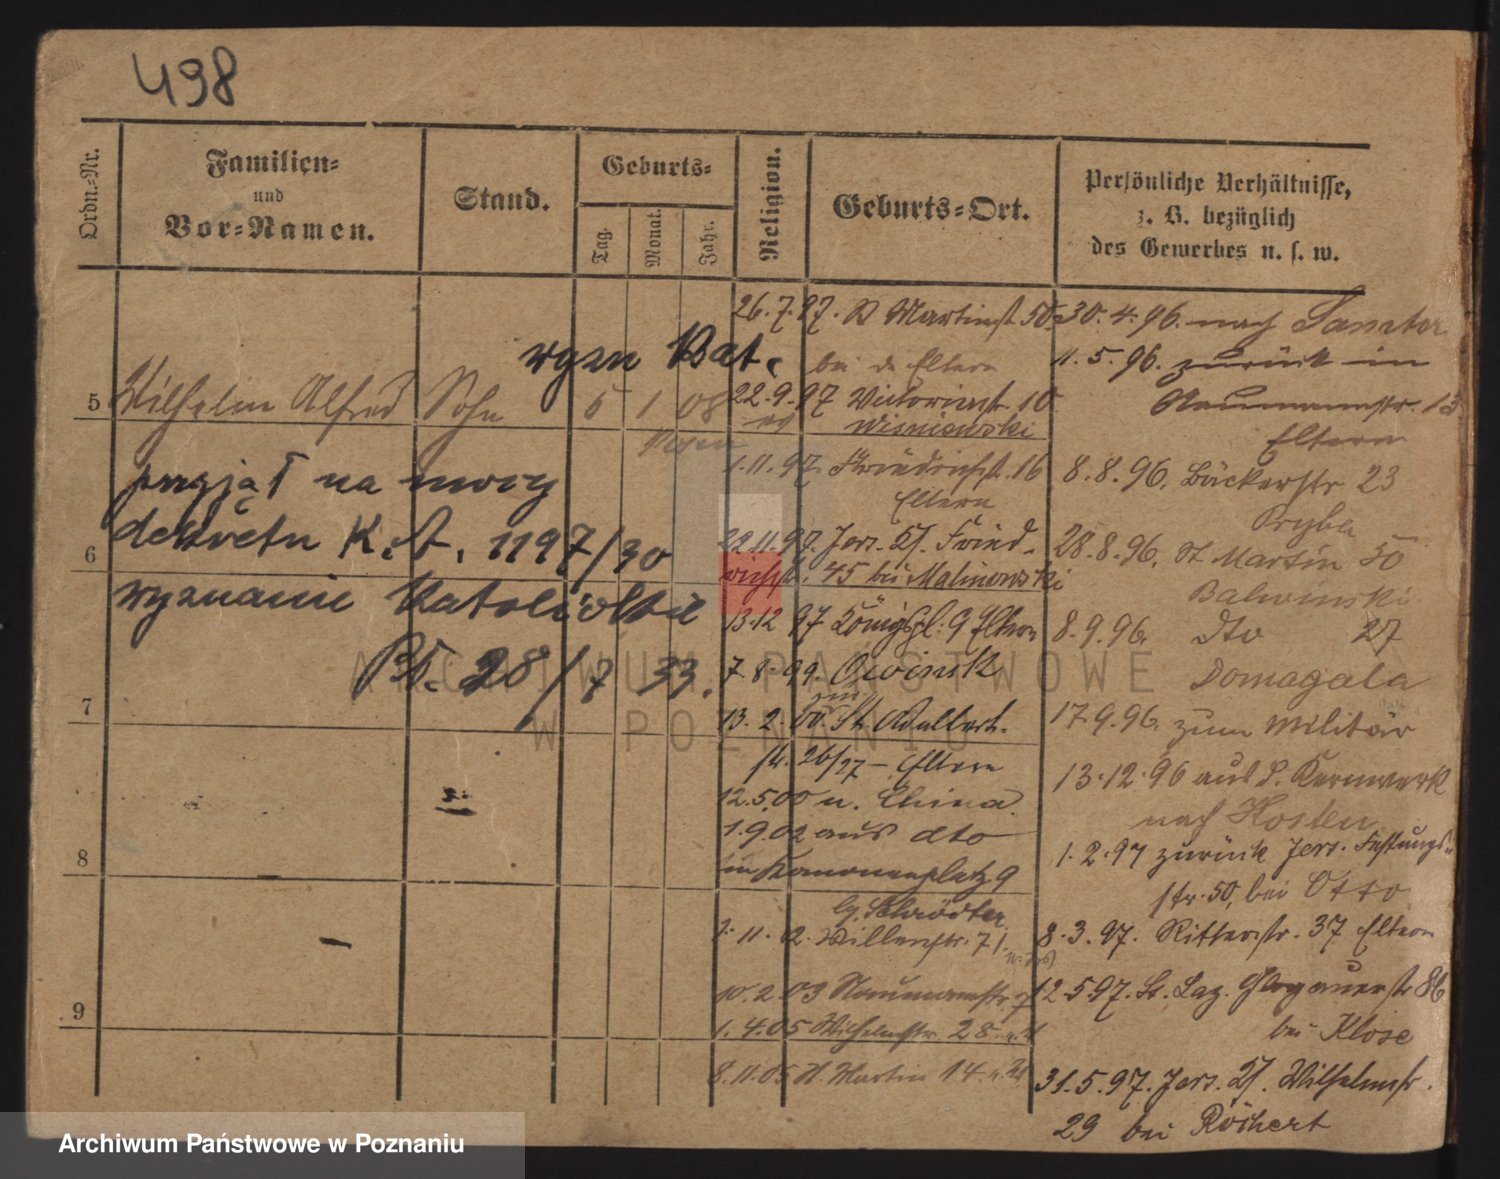 498
Ordn.=Nr.
Familien=
und
Vor=Namen.
Stand.
Geburts=
Tag.
Monat.
Jahr.
Religion.
Geburts=Ort.
Persönliche Verhältnisse,
z. B. bezüglich
des Gewerbes u. s. w.
5 Wilhelm Alfred Sohn 5 1 08
wyzn Kat.
przyjął na mocy
dekretu K. A. 1197/30
wyznanie Katolickie
28/7 33.
6
7
8
9
26.7.97. St Martinst. 50
bei d. Eltern
22.9.97 Victoriastr. 10
Wisniewski
1.11.97. Friedrichst. 16
Eltern
22.11.97. Jers. Fried-
richst. 45 bei Malinowski
13.12 97 Königspl. 9 Eltern
7.8.99. Owinsk
13.2.00. St. Adalbert.
14. 26/27 – Eltern
12.5.00 n. China
1.9.02 aus dto
in Kanonenplatz 9
Schrödter
1.11.02. 71
10.2.03 Naumannstr. 7
1.4.05 Wilhelmstr. 28
8.11.05 St Martin 14
30.4.96. nach
11.5.96. zurück in
Naumannstr. 13
Eltern
8.8.96. Bäckerstr 23
Pryba
28.8.96. St Martin 50
Balwinski
8.9.96. dto 27
Domagala
17.9.96. zum Militär
13.12.96 aus d. Kernwerk
nach Hosten
1.2.97 zurück Jers. Festungs-
str. 50, bei Otto
8.3.97. Ritterstr. 37 Eltern
12.5.97. St. Laz. Glogauerstr 86
bei Klose
31.5.97. Jers. Wilhelmstr.
29 bei Röhert
ARCHIWUM PAŃSTWOWE
W POZNANIU
Archiwum Państwowe w Poznaniu